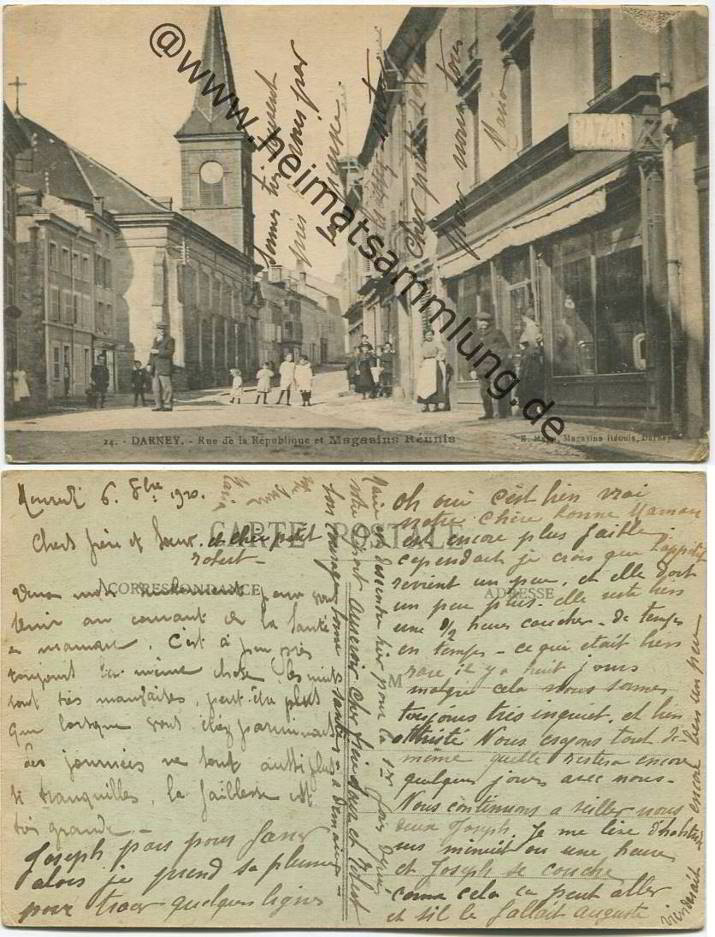 @www.Heimatsammlung.de
BAZAR
Cher petit
Marie
24. - DARNEY. - Rue de la République et Magasins Réunis
Magasins Réunis, Darney
CARTE POSTALE
CORRESPONDANCE
ADRESSE
M
Mercredi 6. 8bre 1920.
Chers frère et Soeur. et cher petit
robert -
Deux mots seulement pour vous
tenir au courant de la Santé
de maman. C'est à peu près
toujours la même chose. Les nuits
sont très mauvaises, peut-être plus
que lorsque vous étiez parminous
des journées ne sont aussi plus
si tranquilles, la faiblesse est
très grande -
Joseph pars pour Jarny
alors je prend sa plume
pour tracer quelques lignes
oh oui c'est bien vrai
notre chère bonne Maman
est encore plus faible
cependant je crois que l'appétit
revient un peu, et elle dort
un peu plus. elle reste bien
une 1/2 heure coucher - de temps
en temps - ce qui etait bien
rare il y a huit jours
malgré cela nous sommes
toujours très inquiet, et bien
attristé Nous esyons tout de
même quelle restera encore
quelques jours avec nous -
Nous continuons a veiller nous
deux Joseph. Je me lève d'habitude
vers minuit ou une heure
et Joseph se couche
comme cela ca peut aller
et s'il le fallait auguste
viendrait encore bien un peu
Marie est descendue hier pour la 1re fois depuis
votre départ au revoir cher frère Soeur et Robert
bon courage bonne santée - a demain -